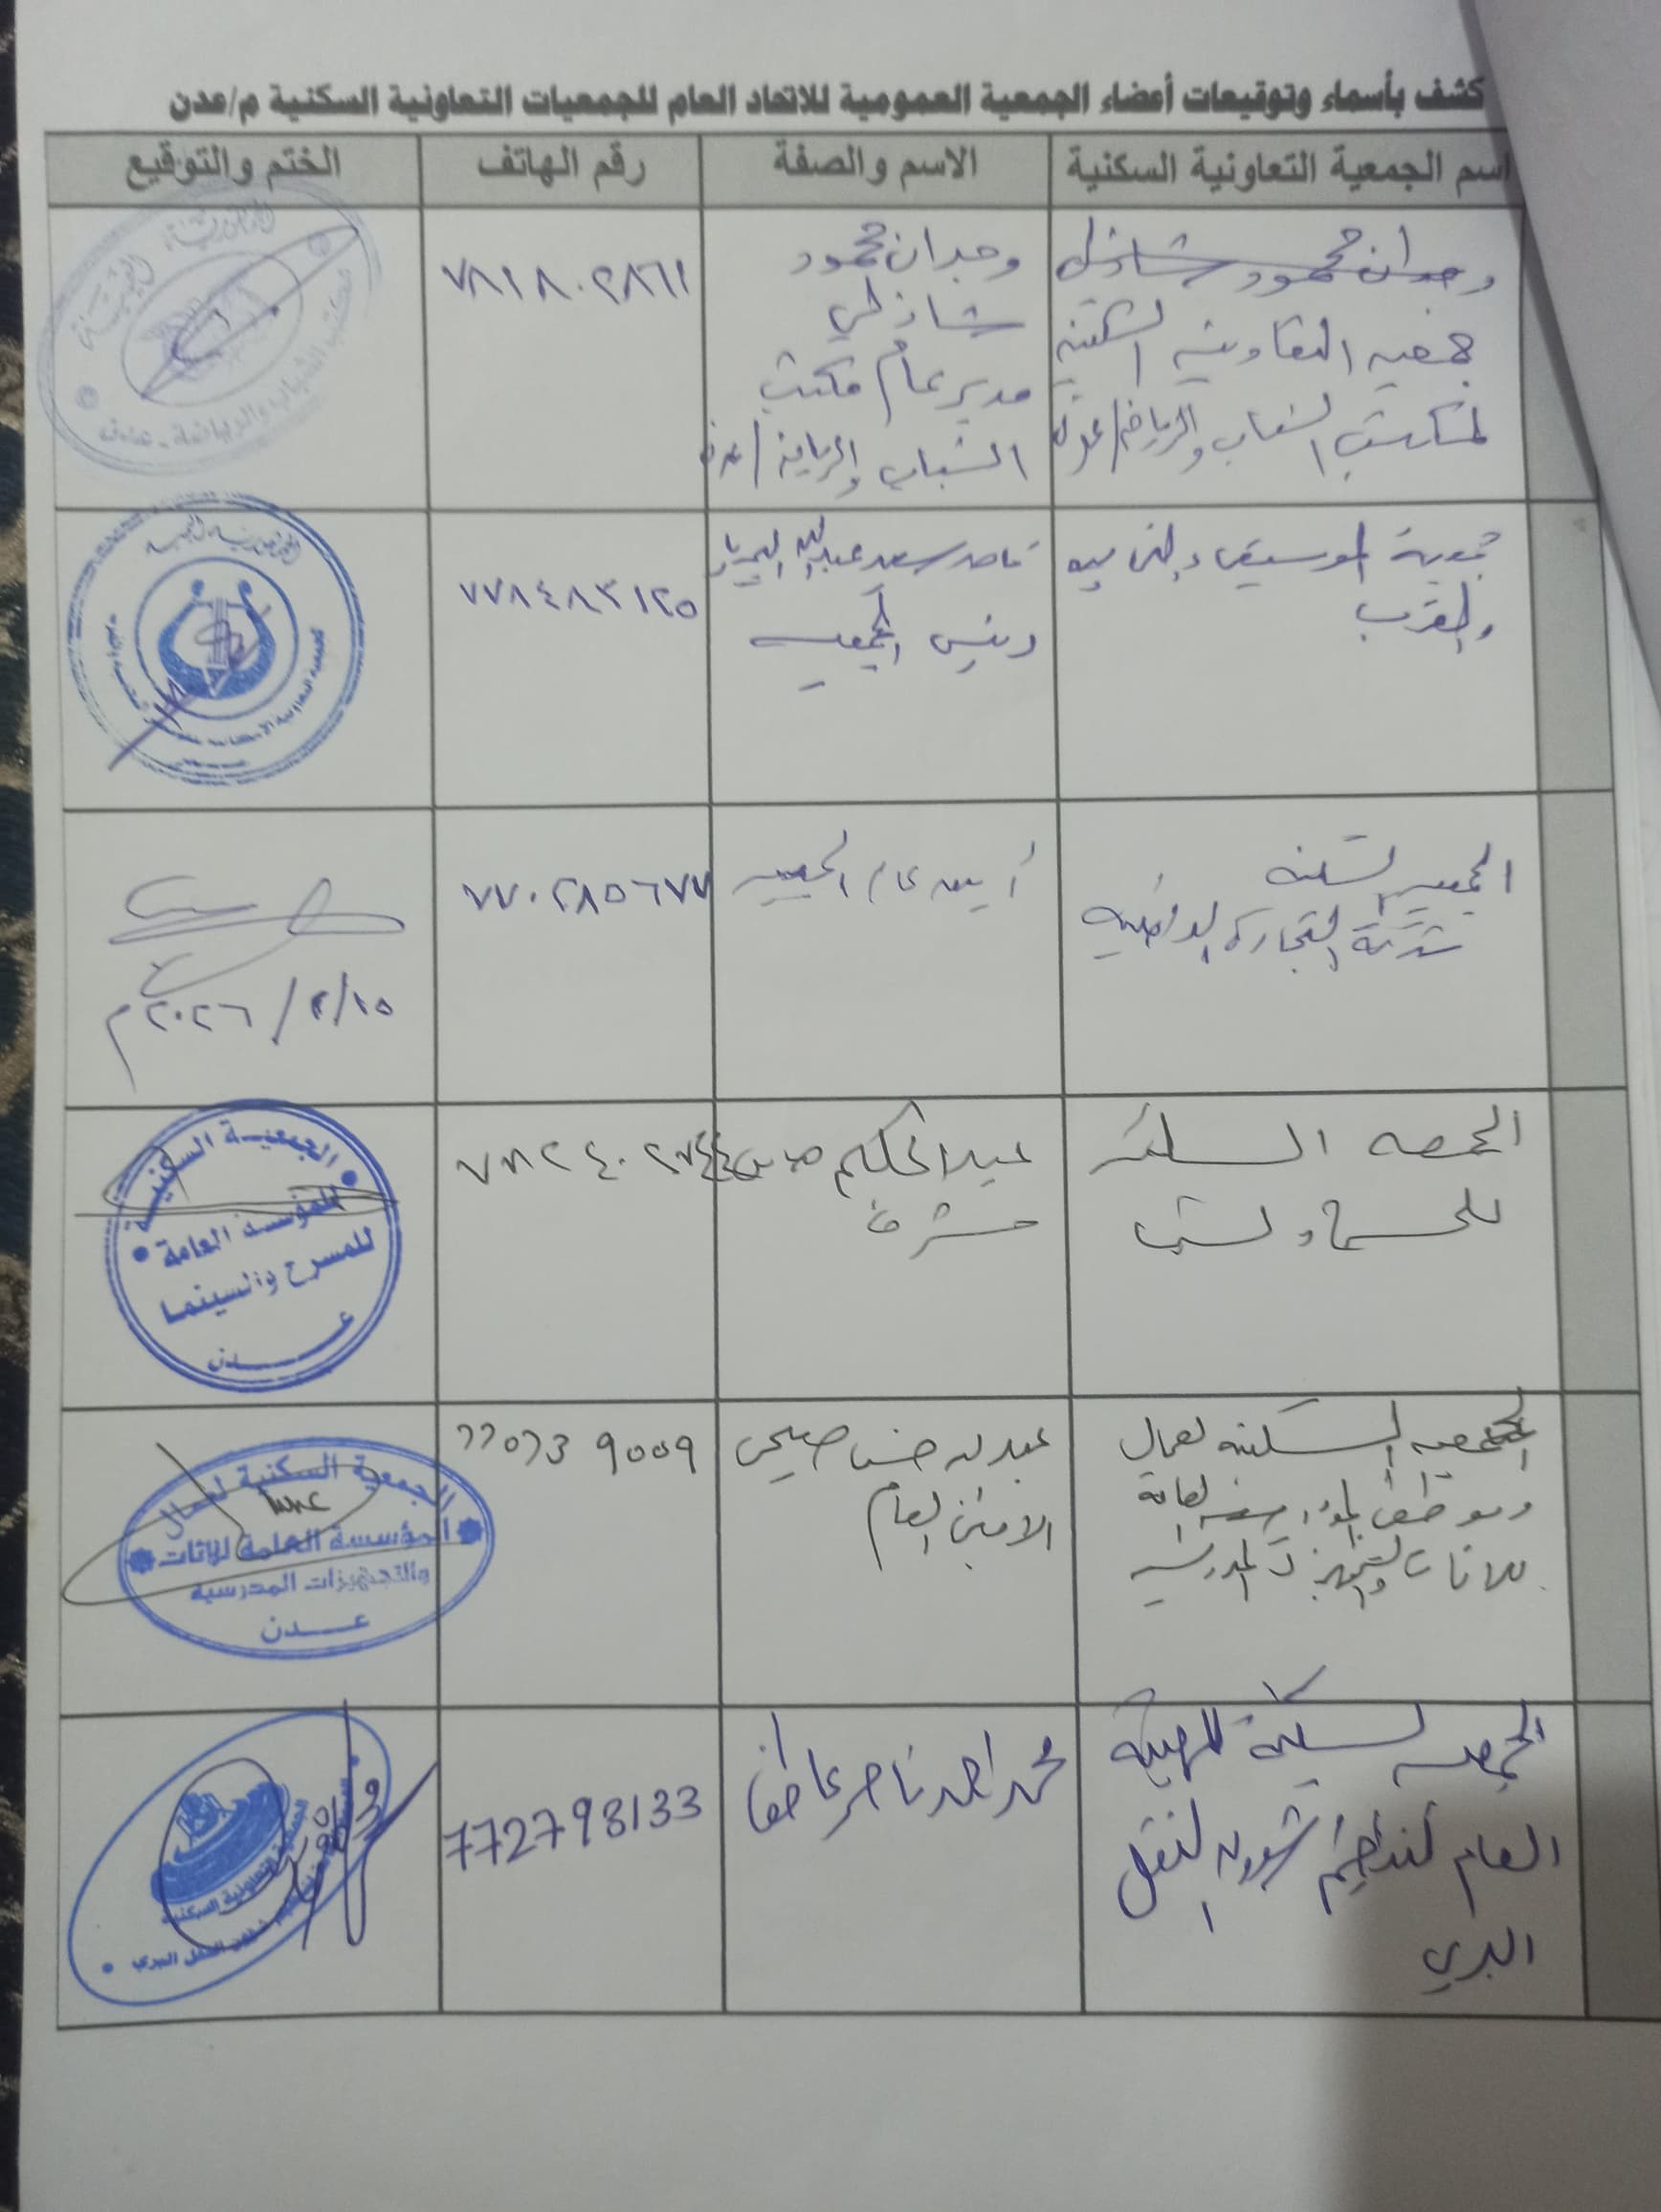 كشف بأسماء وتوقيعات أعضاء الجمعية العمومية للاتحاد العام للجمعيات التعاونية السكنية م/عدن
اسم الجمعية التعاونية السكنية
الاسم والصفة
رقم الهاتف
الختم والتوقيع
وجدان محمود شاذلي
جمعية التعاونية السكنية
لمكتب الشباب والرياضة/عدن
وجدان محمود
شاذلي
مدير عام مكتب
الشباب والرياضة/عدن
٧٨١٨٠٢٨٦١
مكتب الشباب والرياضة - عدن
ناصر سعد عبدالله
رئيس الجمعية
٧٧٨٤٨٣١٢٥
الجمعية السكنية
شركة التجارة الداخلية
أمين عام الجمعية
٧٧٠٢٨٥٦٧٧
١٥/٢/٢٠٢٦م
الجمعية السكنية
للمسرح والسينما
عبدالحكيم
مشرف
الجمعية السكنية
للمؤسسة العامة
للمسرح والسينما
عدن
الجمعية السكنية لعمال
وموظفي المؤسسة العامة
للاثاث والتجهيزات المدرسية
عبدالله حسن صالحي
الامين العام
الجمعية السكنية لعمال
المؤسسة العامة للاثاث
والتجهيزات المدرسية
عدن
الجمعية السكنية للهيئة
العام لتنظيم شؤون النقل
البري
محمد احمد ناصر عاطف
772798133
التعاونية السكنية
شؤون النقل البري